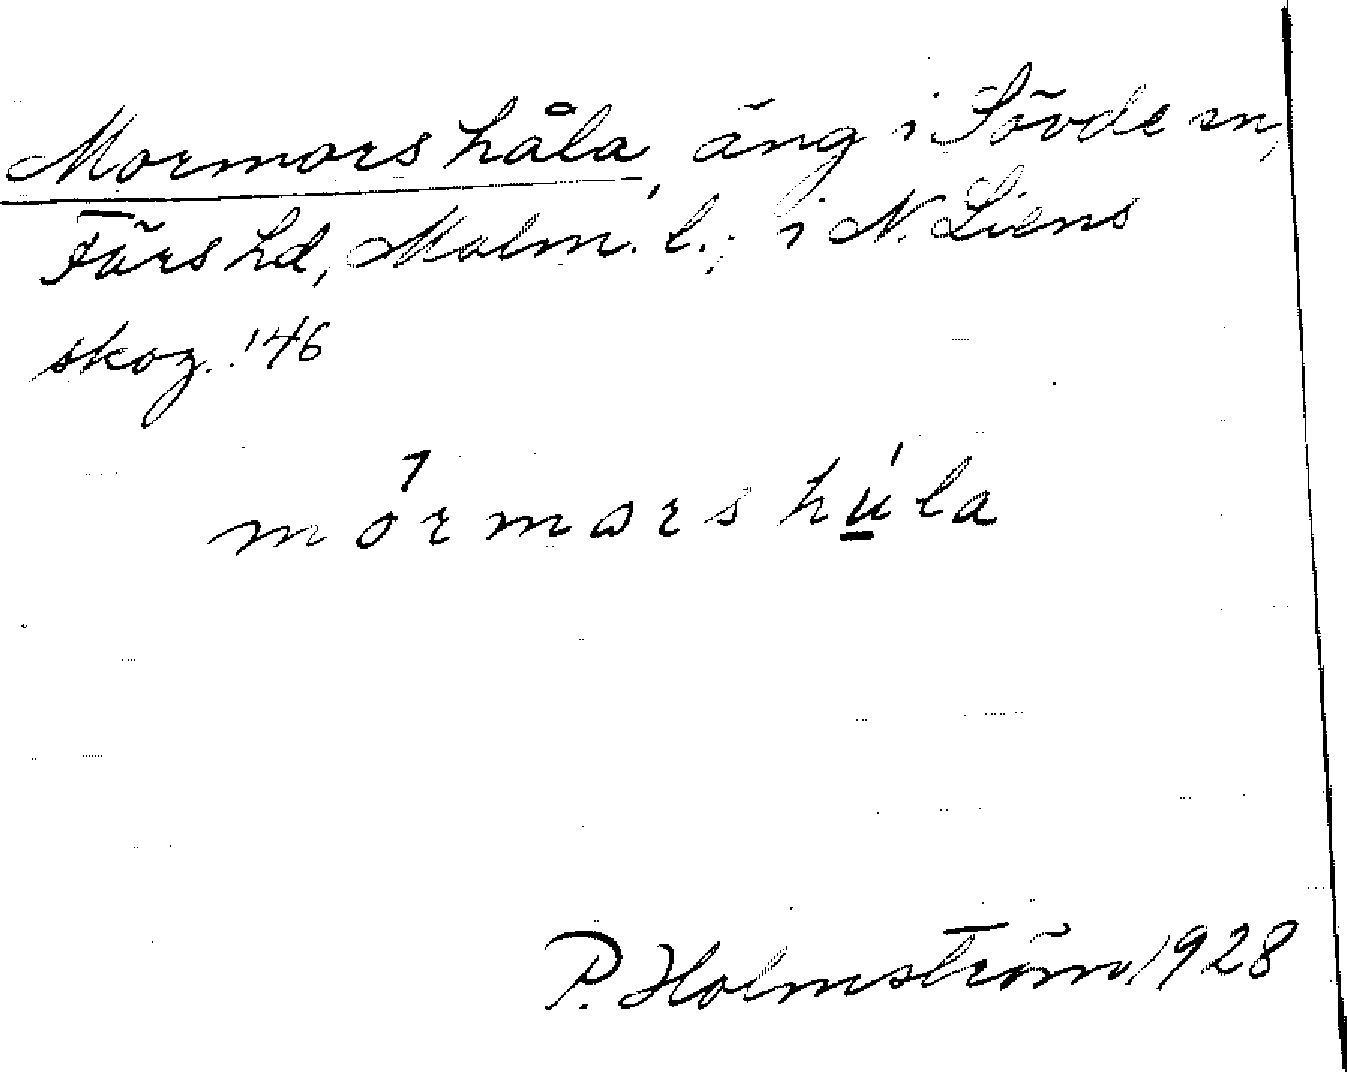 Mormors håla, äng i Sövde sn,
Färs hd, Malm. l.; i N. Liens
skog. '46
mórmors húla
P. Holmström 1928